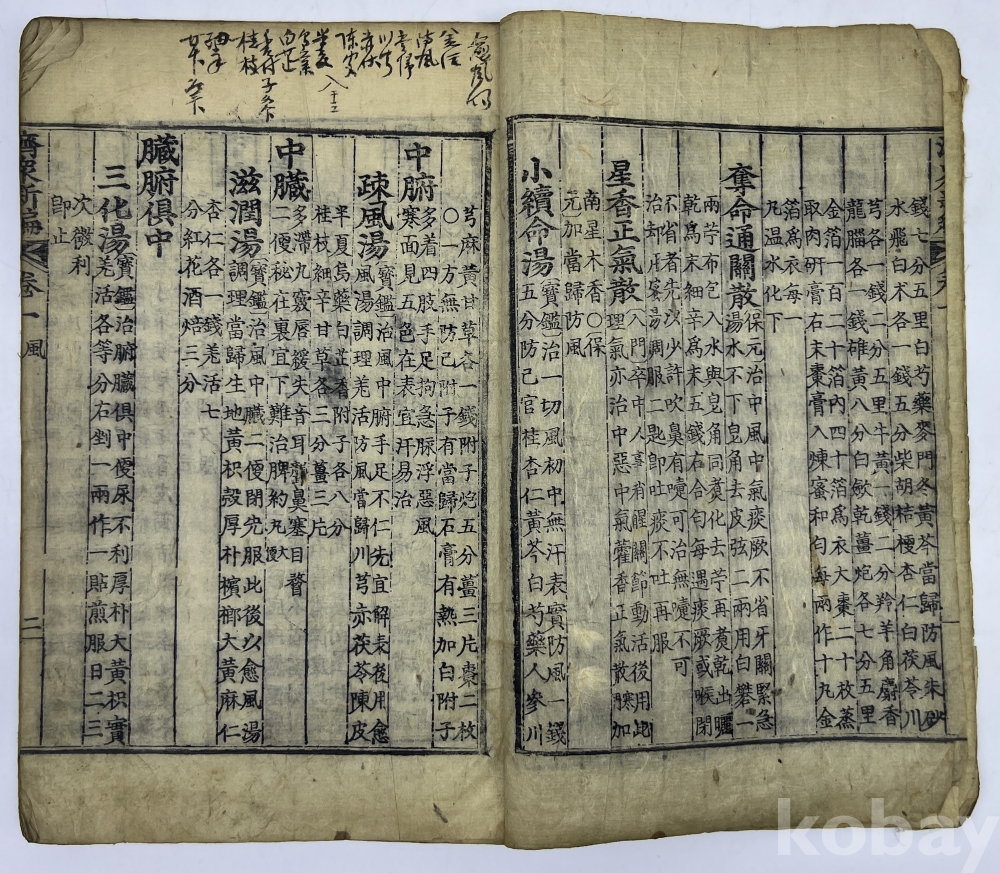 錢七分五里白芍藥麥門冬黃芩當歸防風朱砂
水飛白朮各一錢五分柴胡桔梗杏仁白茯苓川
芎各一錢二分五里牛黃一錢二分羚羊角麝香
龍腦各一錢雄黃八分白斂乾薑炮各七分五里
金箔一百二十箔內四十箔爲衣大棗二十枚蒸
取肉硏膏右末棗膏入煉蜜和勻每兩作十丸金
箔爲衣每一
丸溫水化下
奪命通關散
保元治中風中氣痰厥不省牙關緊急
湯水不下皂角去皮弦二兩用白礬一
兩苧布包入水與皂角同煑化去苧再煑乾出曬
乾爲末細辛爲末五錢右合勻每遇痰厥或喉閉
不省者先以少許吹鼻有嚔可治無嚔不可
治却用蜜湯調服二匙卽吐痰不吐再服
星香正氣散
八門卒中人事稍醒關節動活後用此
理氣亦治中惡中氣藿香正氣散加
南星木香〇保
元加當歸防風
小續命湯
寶鑑治一切風初中無汗表實防風一錢
五分防己官桂杏仁黃芩白芍藥人參川
芎麻黃甘草各一錢附子炮五分薑三片棗二枚
〇一方無防己附子有當歸石膏有熱加白附子
中腑
多着四肢手足拘急脈浮惡風
寒面見五色在表宜汗易治
疎風湯
寶鑑治風中腑手足不仁先宜解表後用愈
風湯調理羌活防風當歸川芎赤茯苓陳皮
半夏烏藥白芷香附子各八分
桂枝細辛甘草各三分薑三片
中臟
多滯九竅唇緩失音耳聾鼻塞目瞀
二便秘在裏宜下難治脾約丸
滋潤湯
寶鑑治風中臟二便閉先服此後以愈風湯
調理當歸生地黃枳殼厚朴檳榔大黃麻仁
杏仁各一錢羌活七
分紅花酒焙三分
臟腑俱中
三化湯
寶鑑治腑臟俱中便尿不利厚朴大黃枳實
羌活各等分右剉一兩作一貼煎服日二三
次微利
卽止
濟衆新編 卷一 風 二
愈風湯
防風
川芎
陳皮
半夏
烏藥
白芷
香附子
桂枝